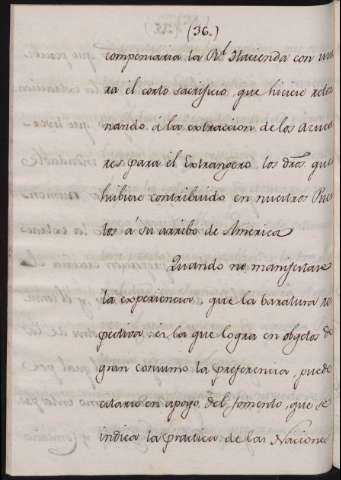 (36.)
compensaria la Rl. Hacienda con usu
ra el corto sacrificio, que hiciese retor
nando á la extraccion de los Azuca
res para el Extrangero, los dros. que
hubiese contribuido en nuestros Puer
tos á su arribo de America
Quando no manifestase
la experiencia, que la baratura res
pectiva es la que logra en objetos de
gran consumo la preferencia, puede
citarse en apoyo del fomento, que se
indica la practica de las Naciones